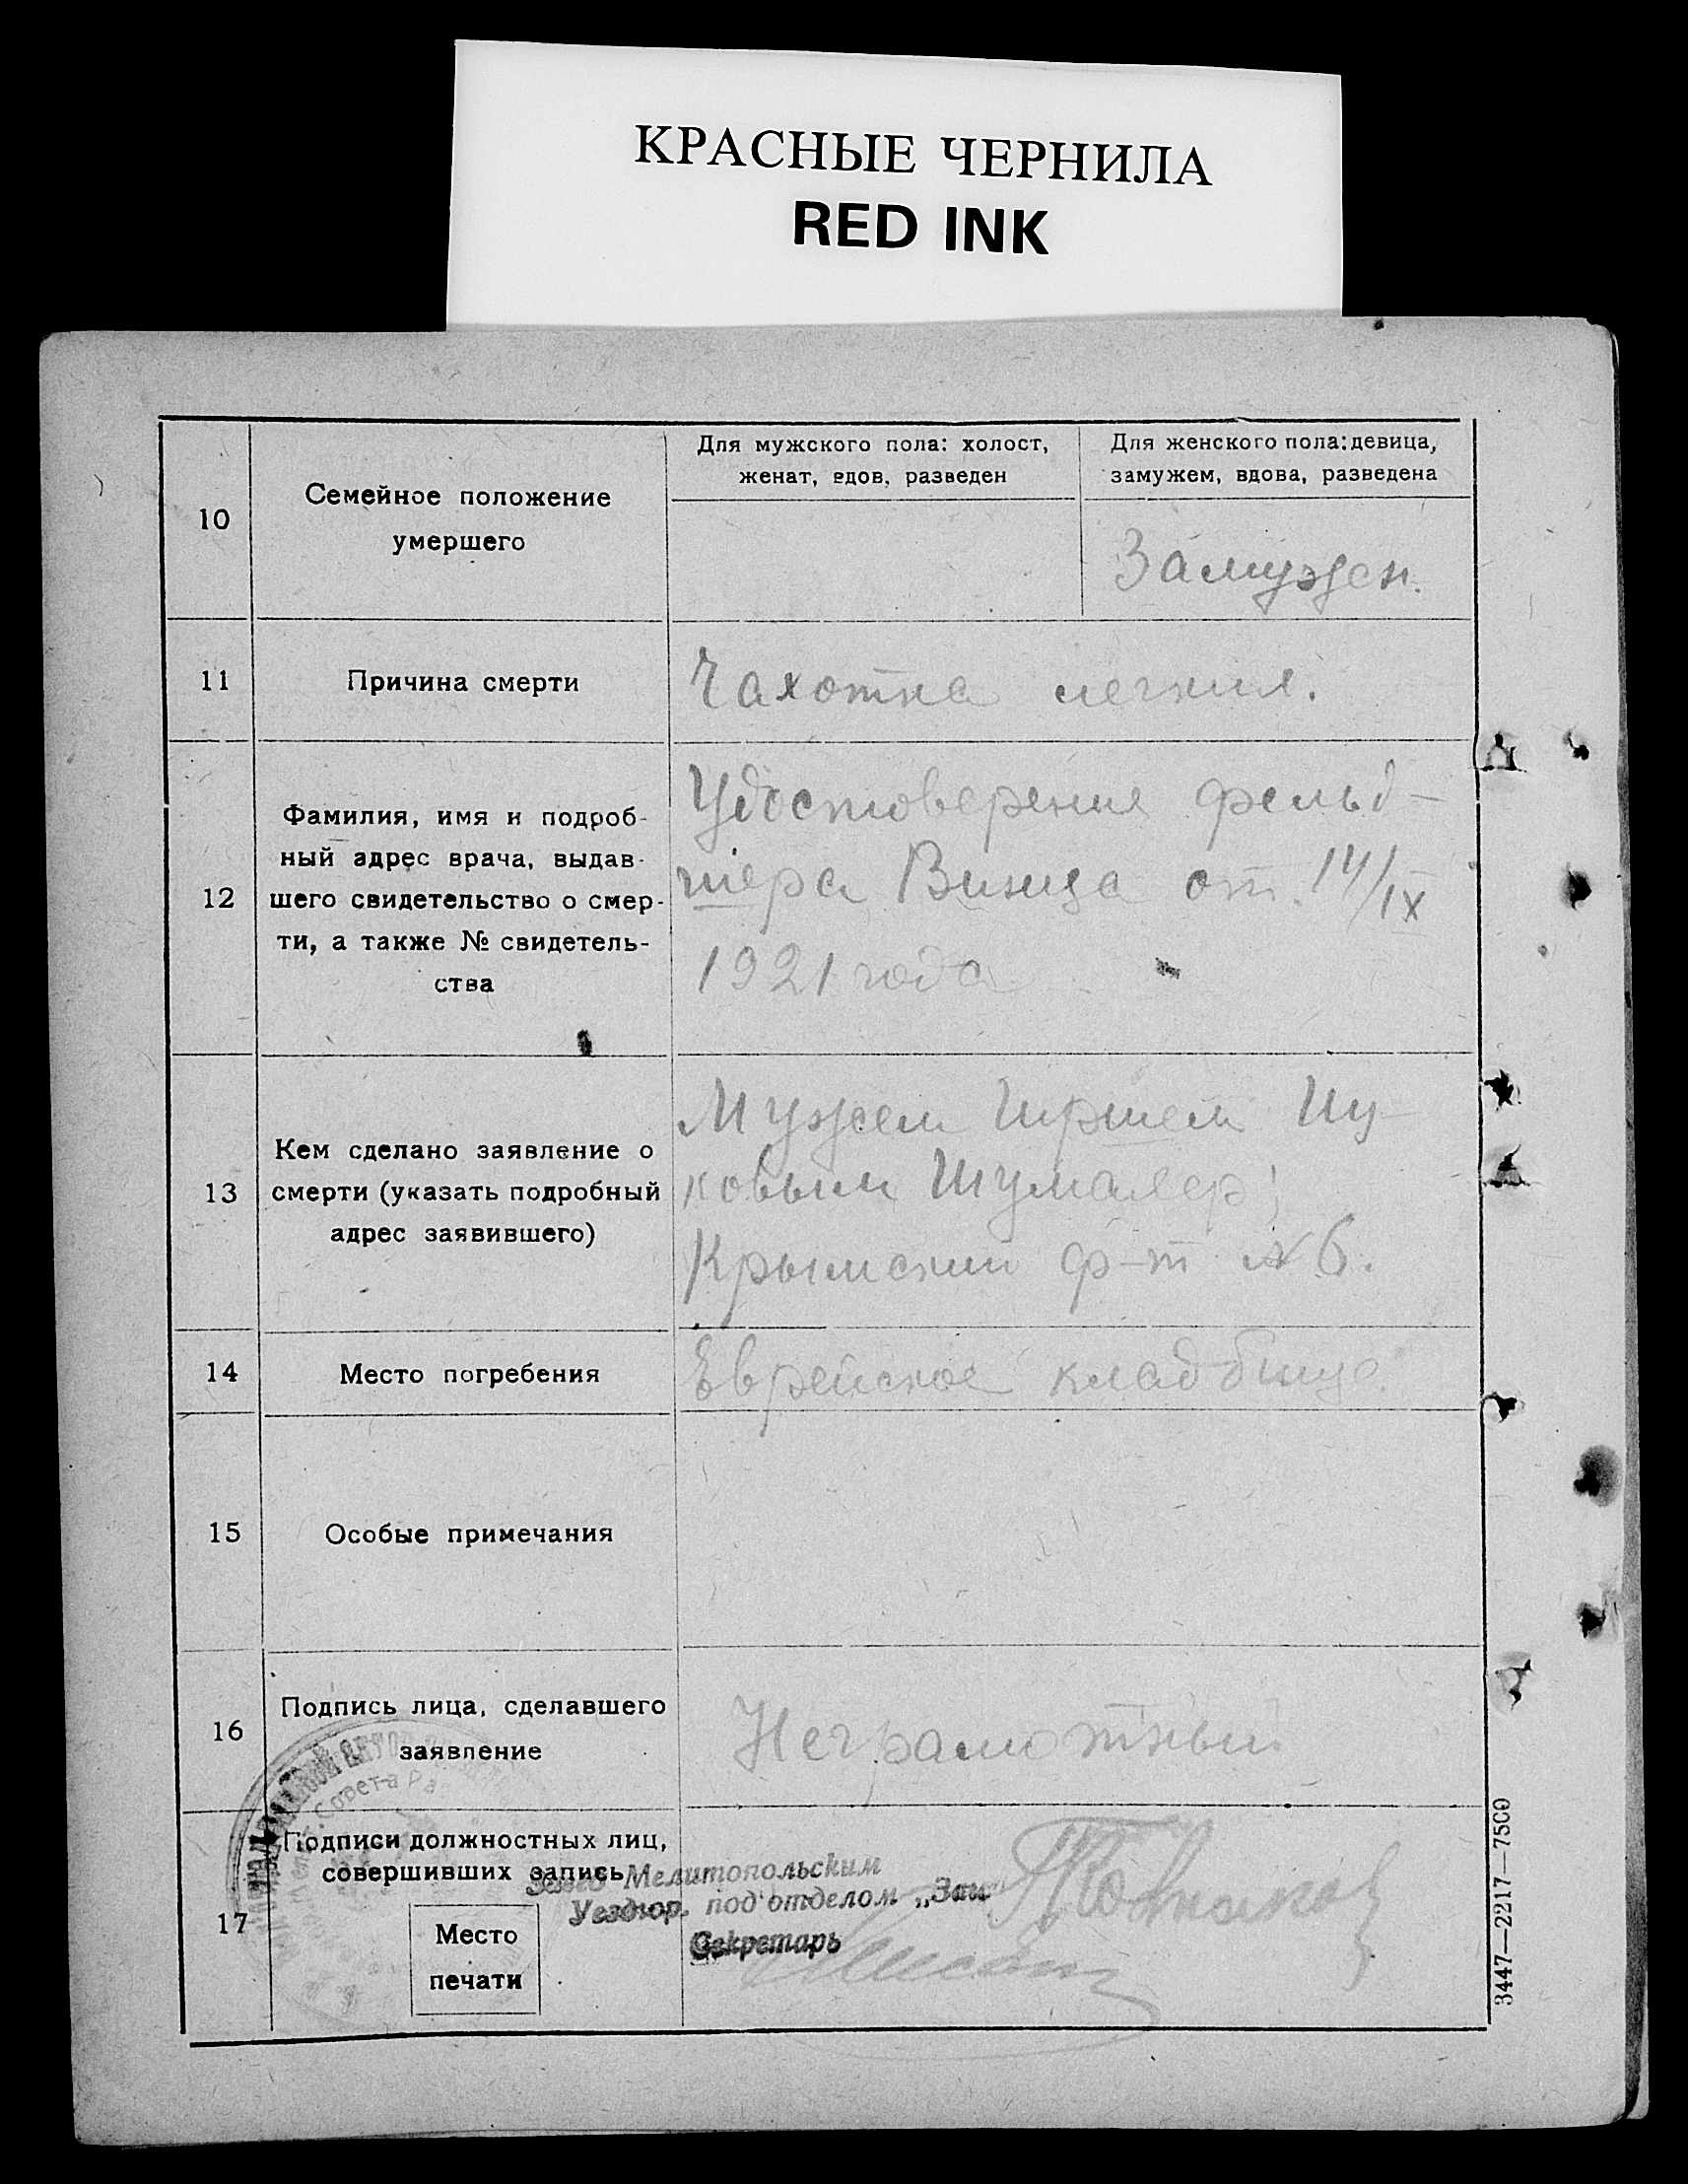 КРАСНЫЕ ЧЕРНИЛА
RED INK
10
Семейное положение
умершего
Для мужского пола: холост,
женат, вдов, разведен
Для женского пола: девица,
замужем, вдова, разведена
Замужем.
11
Причина смерти
Чахотка легких.
12
Фамилия, имя и подроб-
ный адрес врача, выдав-
шего свидетельство о смер-
ти, а также № свидетель-
ства
Удостоверение фельд-
шера от 14/IX
1921 года
13
Кем сделано заявление о
смерти (указать подробный
адрес заявившего)
Мужем
Крымский ф-т № 6.
14
Место погребения
Еврейское кладбище.
15
Особые примечания
16
Подпись лица, сделавшего
заявление
Неграмотный
17
Подписи должностных лиц,
совершивших запись
Место
печати
Совета Ра
Мелитопольским
подотделом
Секретарь
3447—2217—7500